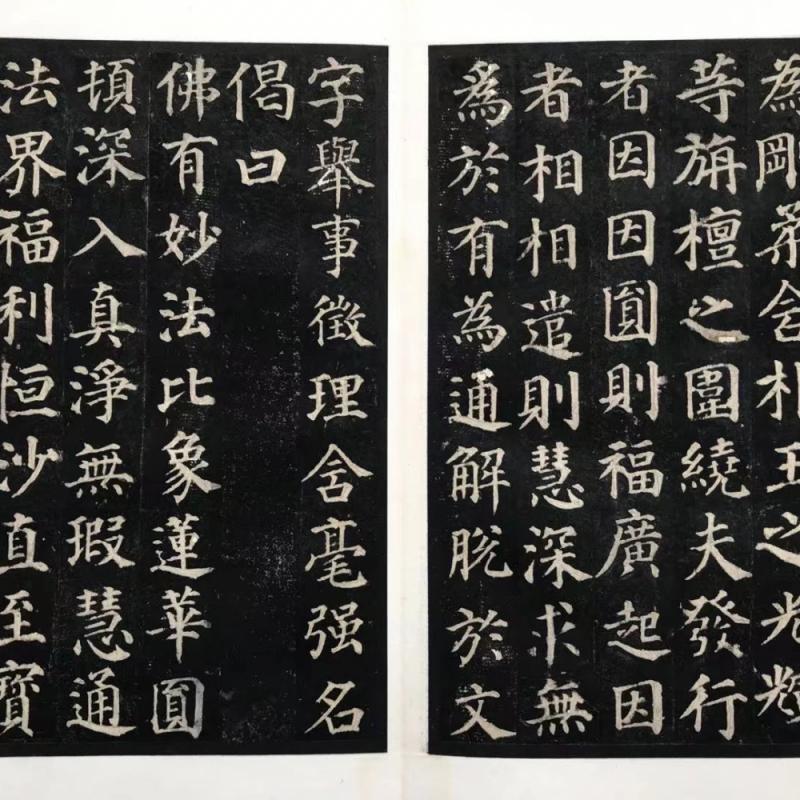 為剛柔含朴玉之光輝
等旃檀之圍繞夫發行
者因因圓則福廣起因
者相相遣則慧深求無
為於有為通解脫於文
字舉事徵理含毫强名
偈曰
佛有妙法比象蓮華圓
頓深入真淨無瑕慧通
法界福利恒沙直至寶